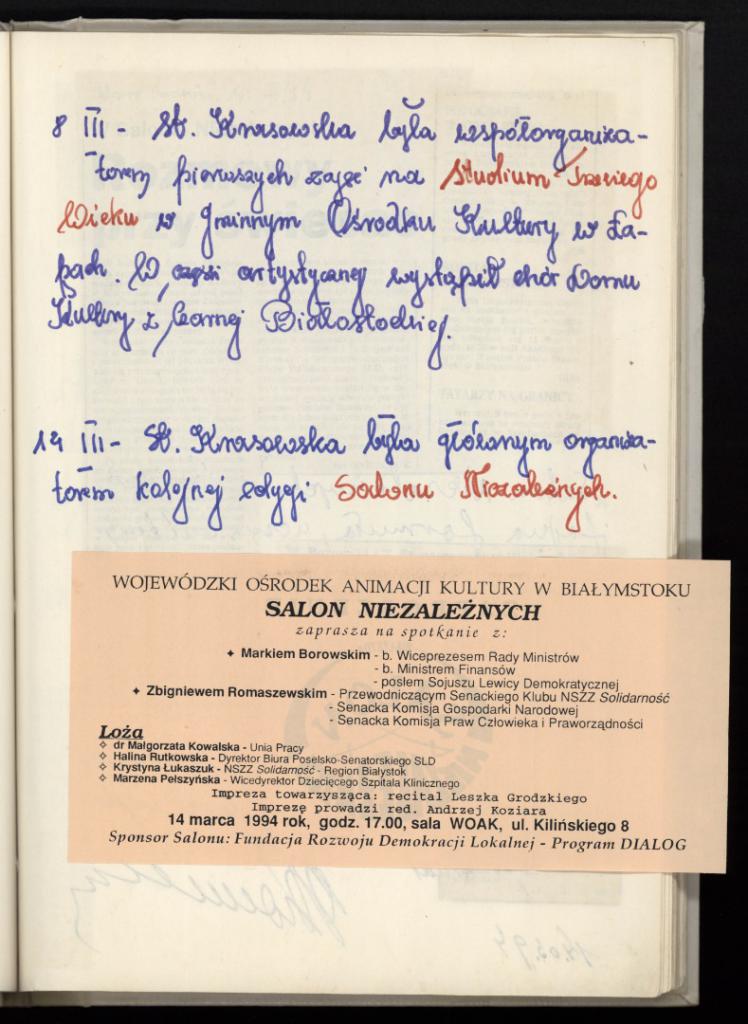 8 III - St. Krasowska była współorganiza-
torem pierwszych zajęć na Studium Trzeciego
Wieku w Gminnym Ośrodku Kultury w Ła-
pach. W części artystycznej wystąpił chór Domu
Kultury z Czarnej Białostockiej.
14 III - St. Krasowska była głównym organiza-
torem kolejnej edycji Salonu Niezależnych.
WOJEWÓDZKI OŚRODEK ANIMACJI KULTURY W BIAŁYMSTOKU
SALON NIEZALEŻNYCH
zaprasza na spotkanie z:
✦ Markiem Borowskim - b. Wiceprezesem Rady Ministrów
- b. Ministrem Finansów
- posłem Sojuszu Lewicy Demokratycznej
✦ Zbigniewem Romaszewskim - Przewodniczącym Senackiego Klubu NSZZ Solidarność
- Senacka Komisja Gospodarki Narodowej
- Senacka Komisja Praw Człowieka i Praworządności
Loża
✧ dr Małgorzata Kowalska - Unia Pracy
✧ Halina Rutkowska - Dyrektor Biura Poselsko-Senatorskiego SLD
✧ Krystyna Łukaszuk - NSZZ Solidarność - Region Białystok
✧ Marzena Pełszyńska - Wicedyrektor Dziecięcego Szpitala Klinicznego
Impreza towarzysząca: recital Leszka Grodzkiego
Imprezę prowadzi red. Andrzej Koziara
14 marca 1994 rok, godz. 17.00, sala WOAK, ul. Kilińskiego 8
Sponsor Salonu: Fundacja Rozwoju Demokracji Lokalnej - Program DIALOG